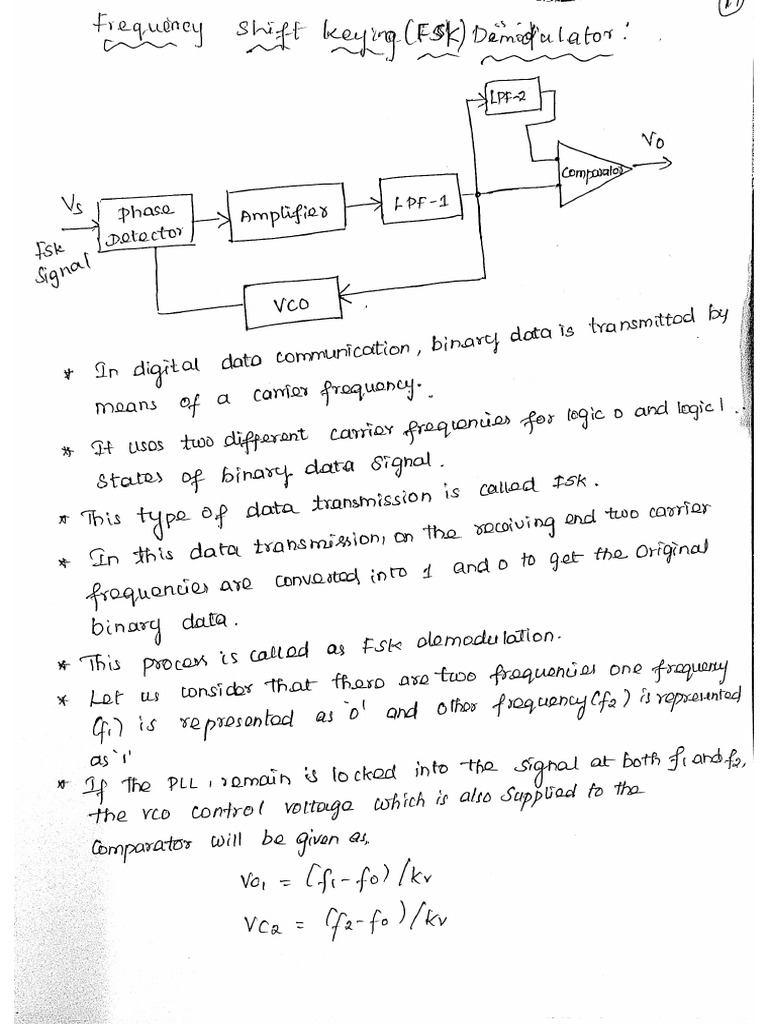 Frequency Shift Keying (FSK) Demodulator:
LPF-2
Vo
Comparator
Vs
Phase
Detector
Amplifier
LPF-1
FSK
Signal
VCO
* In digital data communication, binary data is transmitted by
means of a carrier frequency.
* It uses two different carrier frequencies for logic 0 and logic 1
states of binary data signal.
* This type of data transmission is called FSK.
* In this data transmission, on the receiving end two carrier
frequencies are converted into 1 and 0 to get the Original
binary data.
* This process is called as FSK demodulation.
* Let us consider that there are two frequencies one frequency
(f1) is represented as '0' and other frequency (f2) is represented
as '1'
* If the PLL, remain is locked into the signal at both f1 and f2,
the VCO control voltage which is also supplied to the
comparator will be given as,
Vo1 = (f1-fo)/kv
VC2 = (f2-fo)/kv